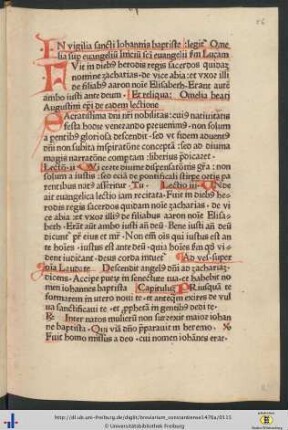 56
IN vigilia sancti Iohannis baptiste legit² Ome
lia sup euangeliū Inicij scī euangelij s̄m Lucam
Fuit in dieb² herodis regis sacerdos quidaȝ
nomine zacharias· de vice abia·et vxor illi
de filiab² aaron noīe Elisabeth·Erant autē
ambo iusti ante deum· Et reliqua· Omelia beati
Augustini ep̄i de eadem lectione
Sacratissima dn̄i nr̄i nobilitas·cui² natiuitatis
festa hodie venerando preuenim²·non solum
a pentib² gloriosa descendit·
dn̄i non subita inspiratōne conceptā·sed ao diuina
magis narratōne comptam·liberius p̄dicaret·
Lectō·ij·
solum a iustis·seo ecia de pontificali stirpe ortis pa
rentibus nat² asseritur· Tu· Lectio iij· Vnde
ait euangelica lectio iam recitata·Fuit in dieb² he
rodis regis sacerdos quidam noīe zacharias· de vi
ce abia·et vxor illi² de filiabus aaron noīe Elisa
beth· Erāt aūt ambo iusti an̄ deū· Bene iusti an̄ deū
dicunt² p̄r eius et mr̄· Non em̄ oīs qui iustus est an
te hoīes· iustus est ante deū·
dent iudicat·deus corda intuet² Ad vesp super
p̄s̄ Laudate· Descendit angel² dn̄i ad zachariā
dicens· Accipe puer in senectute tua·et habebit no
men iohannes baptista Capitulum Priusquā te
formarem in vtero noui te· et anteqm̄ exires de vul
ua sanctificaui te· et p̄phetā in gentib² dedi te·
R̄· Inter natos mulierū non surrexit maior iohan
ne baptista· Qui viā dn̄o p̄parauit in heremo· V̄
Fuit homo missus a deo·cui nomen iohānes erat·
http://dl.ub.uni-freiburg.de/diglit/breviarium_constantiense1476a/0111
© Universitätsbibliothek Freiburg